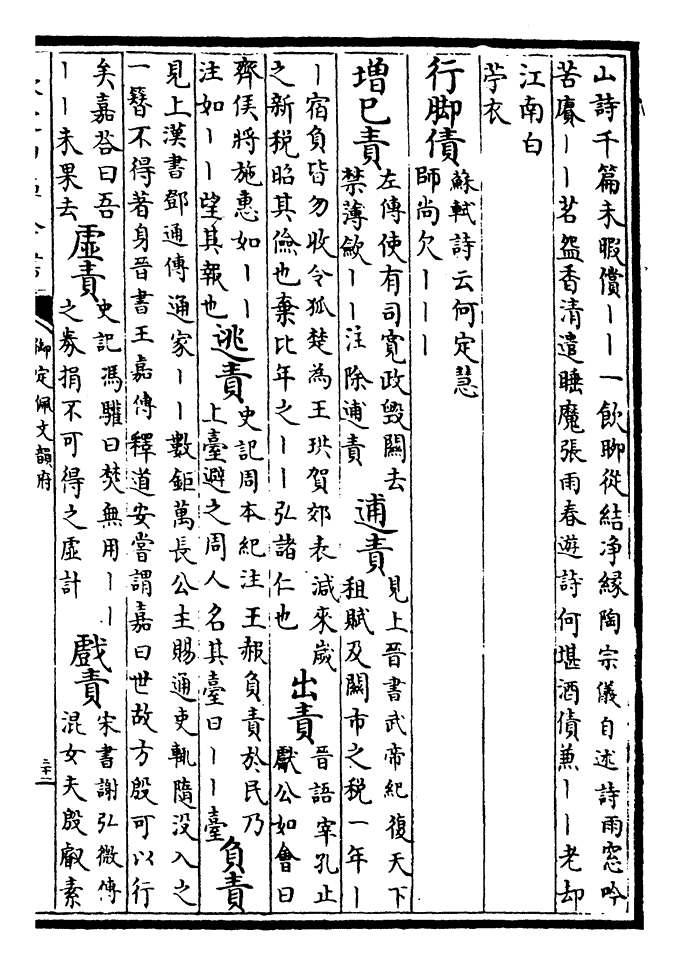 山詩千篇未暇償丨丨一飲聊從結净縁陶宗儀自述詩雨窓吟
苦賡丨丨茗盌香清遣睡魔張雨春遊詩何堪酒債兼丨丨老却
江南白
苧衣
行脚債
蘇軾詩云何定慧
師尚欠丨丨丨
增已責
左傳使有司寛政毁關去
禁薄斂丨丨注除逋責
逋責
見上晉書武帝紀復天下
租賦及關市之税一年丨
丨宿負皆勿收令狐楚為王珙賀郊表減來嵗
之新税昭其儉也棄比年之丨丨弘諸仁也
出責
晉語宰孔止
獻公如會曰
齊侯將施惠如丨丨
注如丨丨望其報也
逃責
史記周本紀注王赧負責於民乃
上臺避之周人名其臺曰丨丨臺
負責
見上漢書鄧通傳通家丨丨數鉅萬長公主賜通吏輒隨没入之
一簪不得著身晉書王嘉傳釋道安嘗謂嘉曰世故方殷可以行
矣嘉答曰吾
丨丨未果去
虛責
史記馮驩曰焚無用丨丨
之券捐不可得之虛計
戲責
宋書謝弘微傳
混女夫殷叡素
御定佩文韻府
二十二